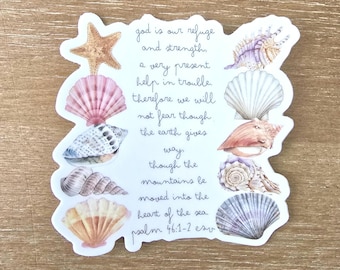 god is our refuge
and strength,
a very present
help in trouble.
therefore we will
not fear though
the earth gives
way,
though the
mountains be
moved into the
heart of the sea
psalm 46:1-2 esv